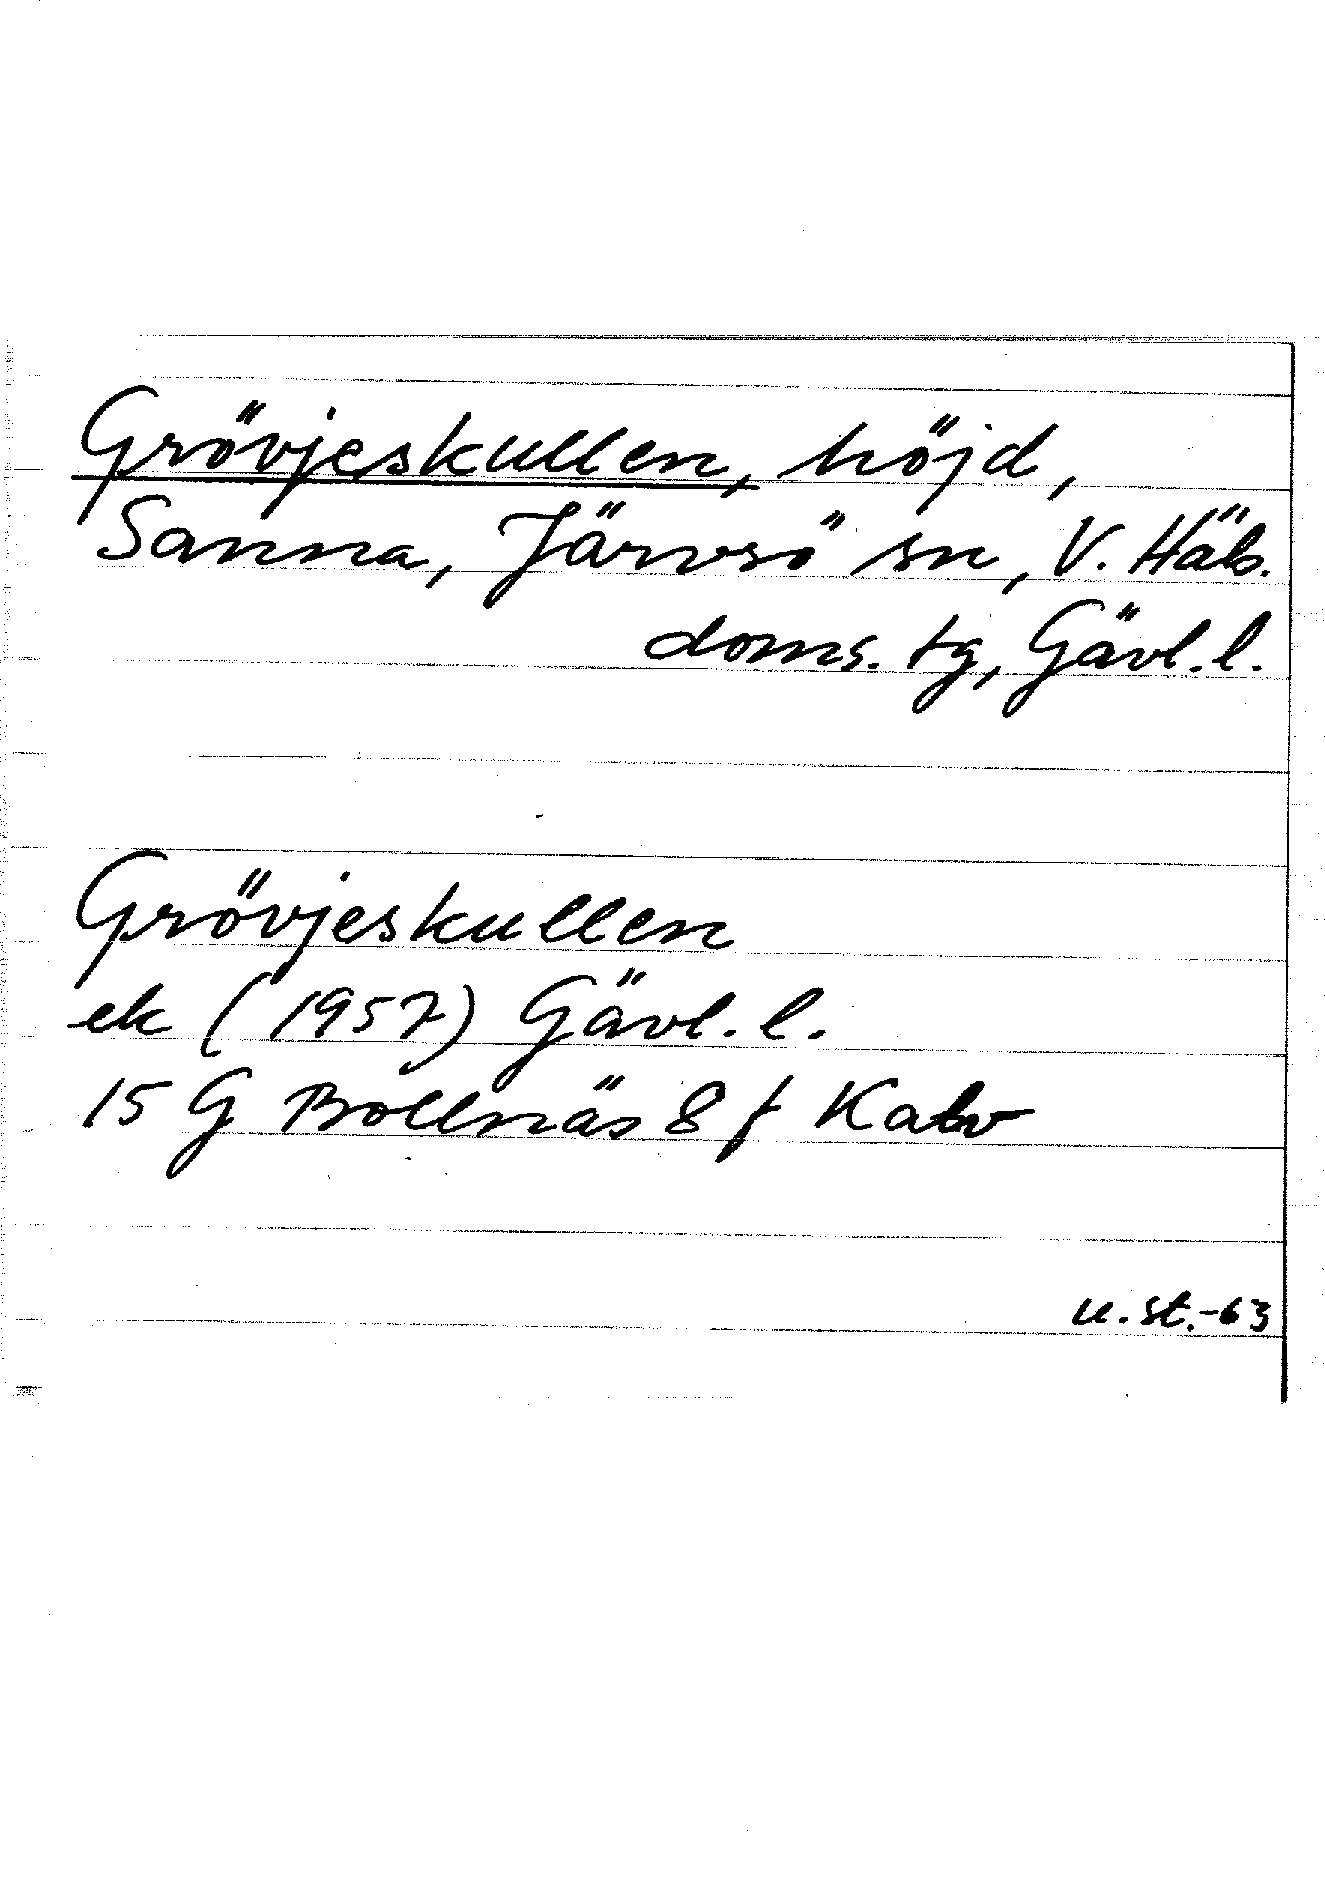 Grövjeskullen, höjd,
Sanna, Järvsö sn, V. Häls.
doms. tg, Gävl. l.
Grövjeskullen
ek (1957) Gävl. l.
15 G Bollnäs 8 f Katv
u. st. -63